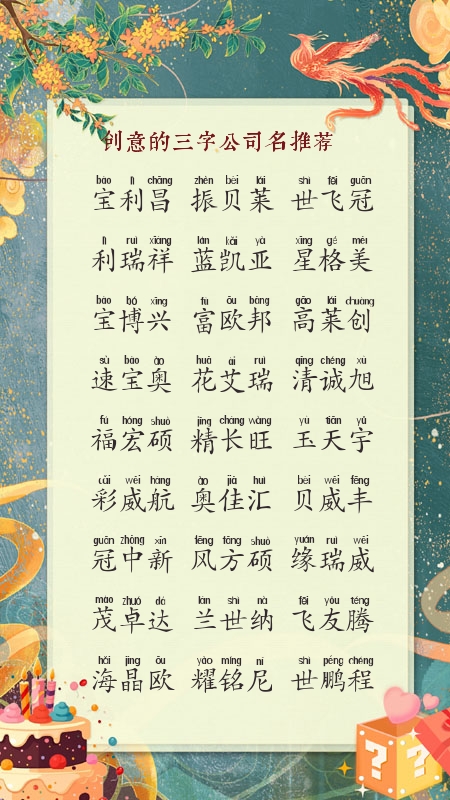 创意的三字公司名推荐
bǎo lì chāng zhèn bèi lái shì fēi guān
宝利昌 振贝莱 世飞冠
lì ruì xiáng lán kǎi yà xīng gé měi
利瑞祥 蓝凯亚 星格美
bǎo bó xīng fù ōu bāng gāo lái chuàng
宝博兴 富欧邦 高莱创
sù bǎo ào huā ài ruì qīng chéng xù
速宝奥 花艾瑞 清诚旭
fú hóng shuò jīng cháng wàng yù tiān yǔ
福宏硕 精长旺 玉天宇
cǎi wēi háng ào jiā huì bèi wēi fēng
彩威航 奥佳汇 贝威丰
guān zhōng xīn fēng fāng shuò yuán ruì wēi
冠中新 风方硕 缘瑞威
mào zhuó dá lán shì nà fēi yǒu téng
茂卓达 兰世纳 飞友腾
hǎi jīng ōu yào míng ní shì péng chéng
海晶欧 耀铭尼 世鹏程
? ?